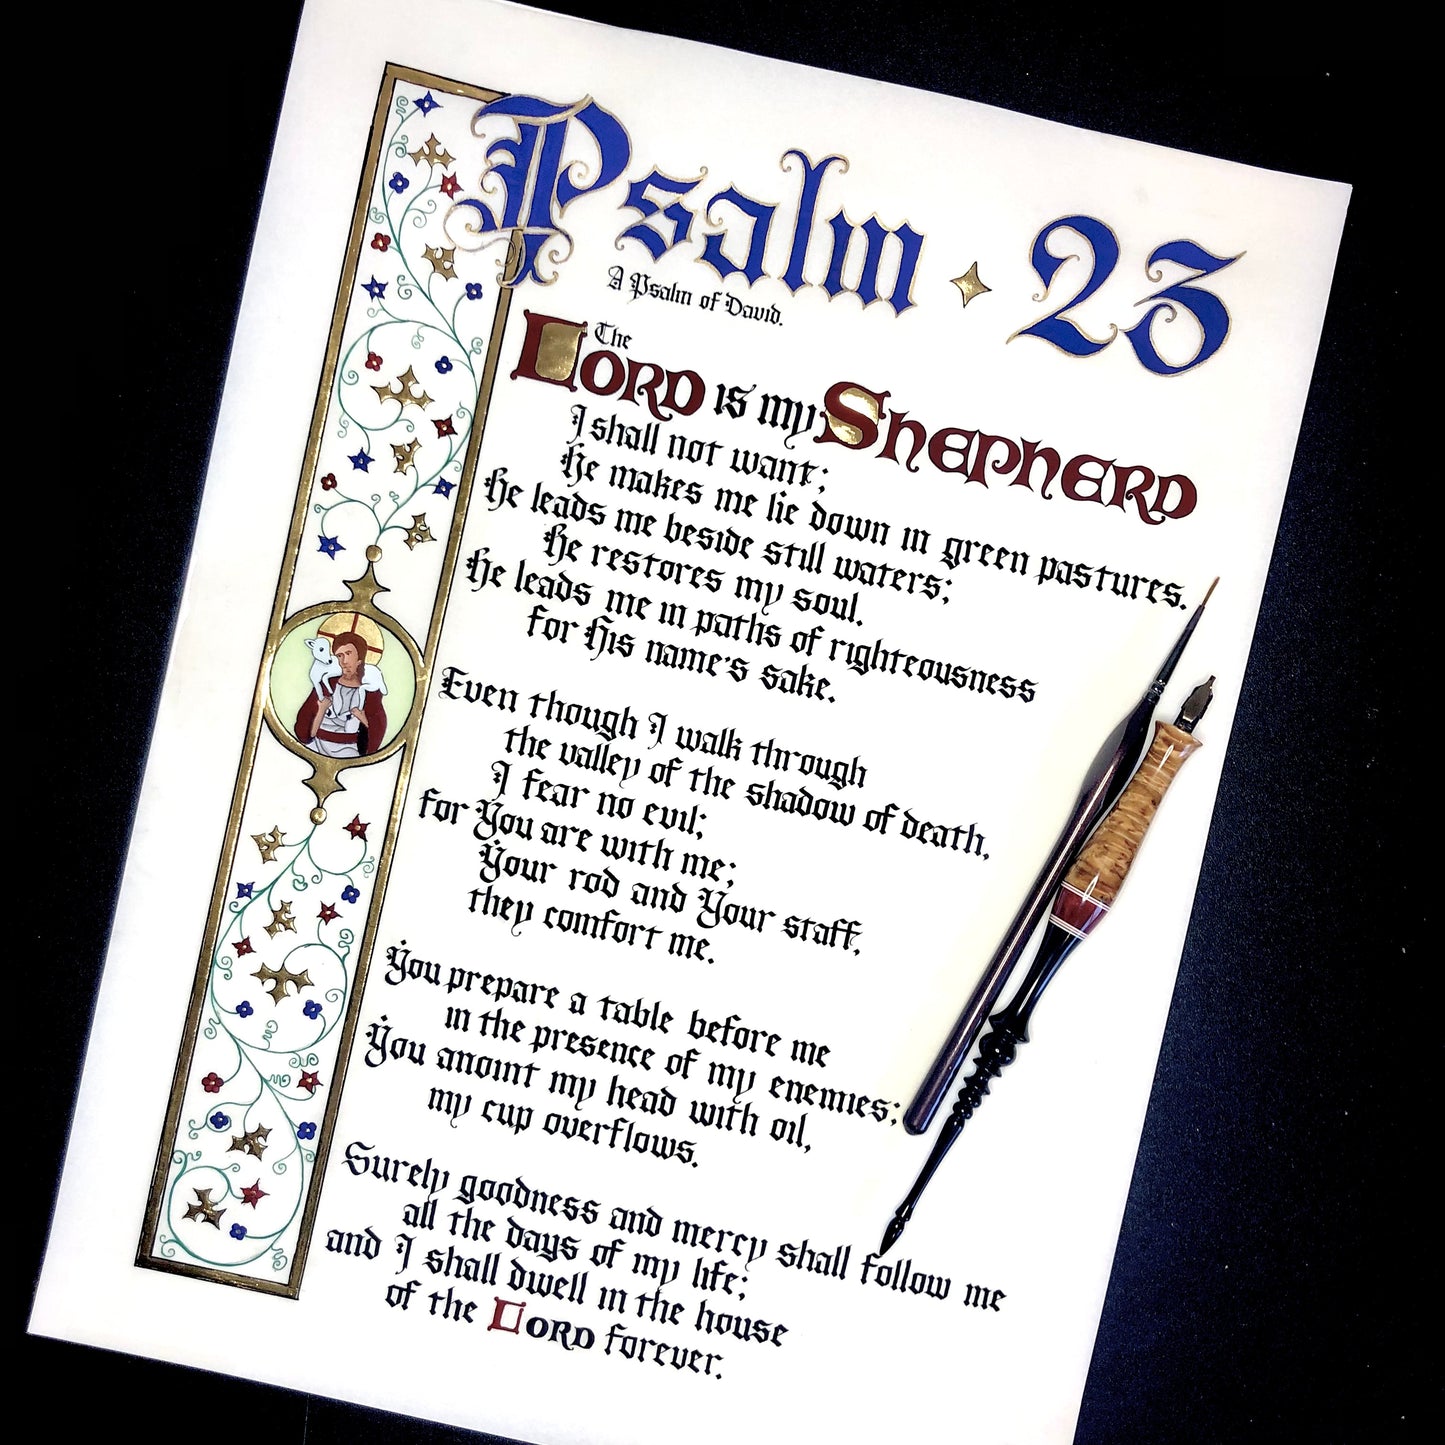 Psalm · 23
A Psalm of David.
The LORD is my SHEPHERD
I shall not want;
He makes me lie down in green pastures.
He leads me beside still waters;
He restores my soul.
He leads me in paths of righteousness
for His name's sake.
Even though I walk through
the valley of the shadow of death,
I fear no evil;
for You are with me;
Your rod and Your staff,
they comfort me.
You prepare a table before me
in the presence of my enemies;
You anoint my head with oil,
my cup overflows.
Surely goodness and mercy shall follow me
all the days of my life;
and I shall dwell in the house
of the LORD forever.